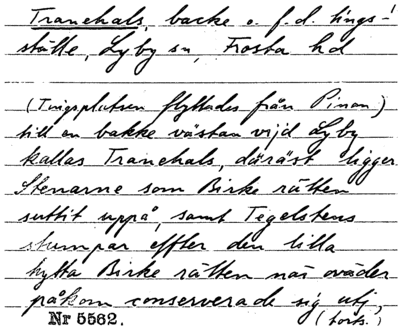 Tranehals, backe o. f.d. tings-
ställe, Lyby sn, Frosta hd
(Tingsplatsen flyttades från Pinan)
till en bakke västan vijd Lyby
kallas Tranehals, däräst ligger
Stenarne som Birke rätten
suttit uppå, samt Tegelstens
stumpar effter den lilla
hytta Birke rätten när oväder
påkom conserverade sig utj,
Nr 5562. (forts.)